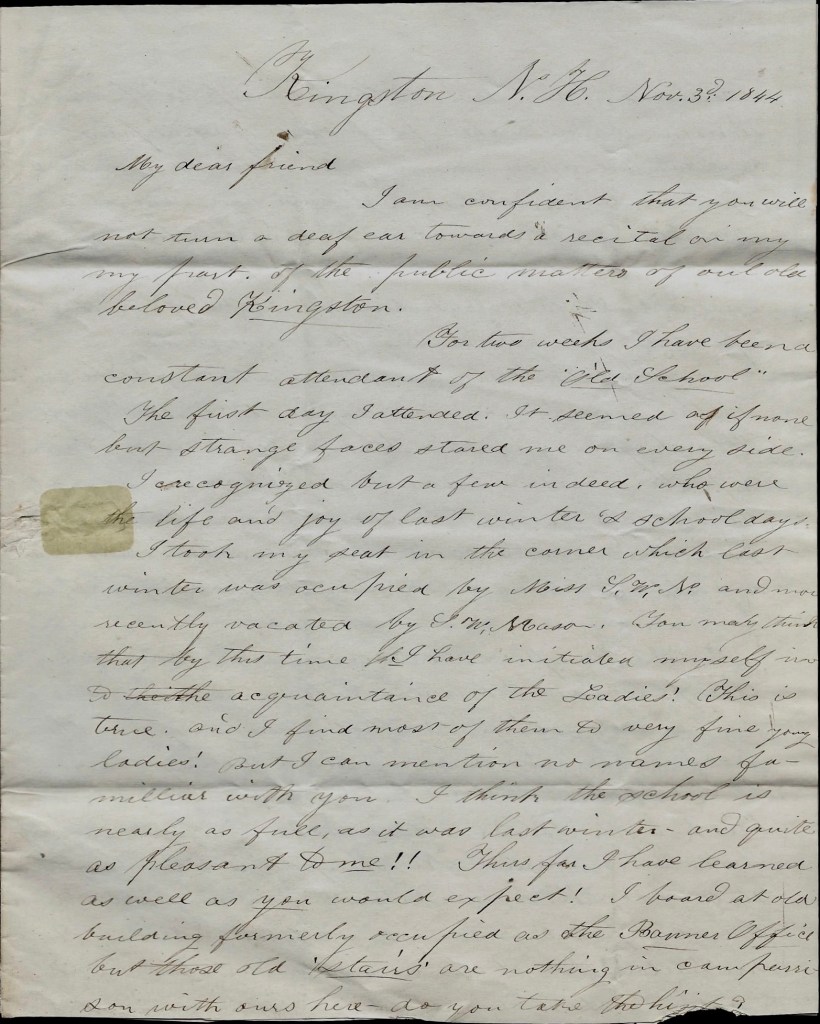 Kingston N. H. Nov. 3d. 1844
My dear friend
I am confident that you will
not turn a deaf ear towards a recital on my
my part. of the public matters of our old
beloved Kingston.
For two weeks I have been a
constant attendant of the "Old School"
The first day I attended. It seemed as if none
but strange faces stared me on every side.
I recognized but a few indeed. who were
the life and joy of last winter's school days.
I took my seat in the corner which last
winter was ocupied by Miss S. W. N. and more
recently vacated by S. W. Mason. You may think
that by this time I have initiated myself in
to the acquaintance of the Ladies! This is
true. and I find most of them to very fine young
ladies! But I can mention no names fa-
milliar with you. I think the school is
nearly as full, as it was last winter - and quite
as pleasant to me!! Thus far I have learned
as well as you would expect! I board at old
building formerly occupied as the Banner Office
but those old 'stairs' are nothing in camparri-
son with ours here - do you take the hint?